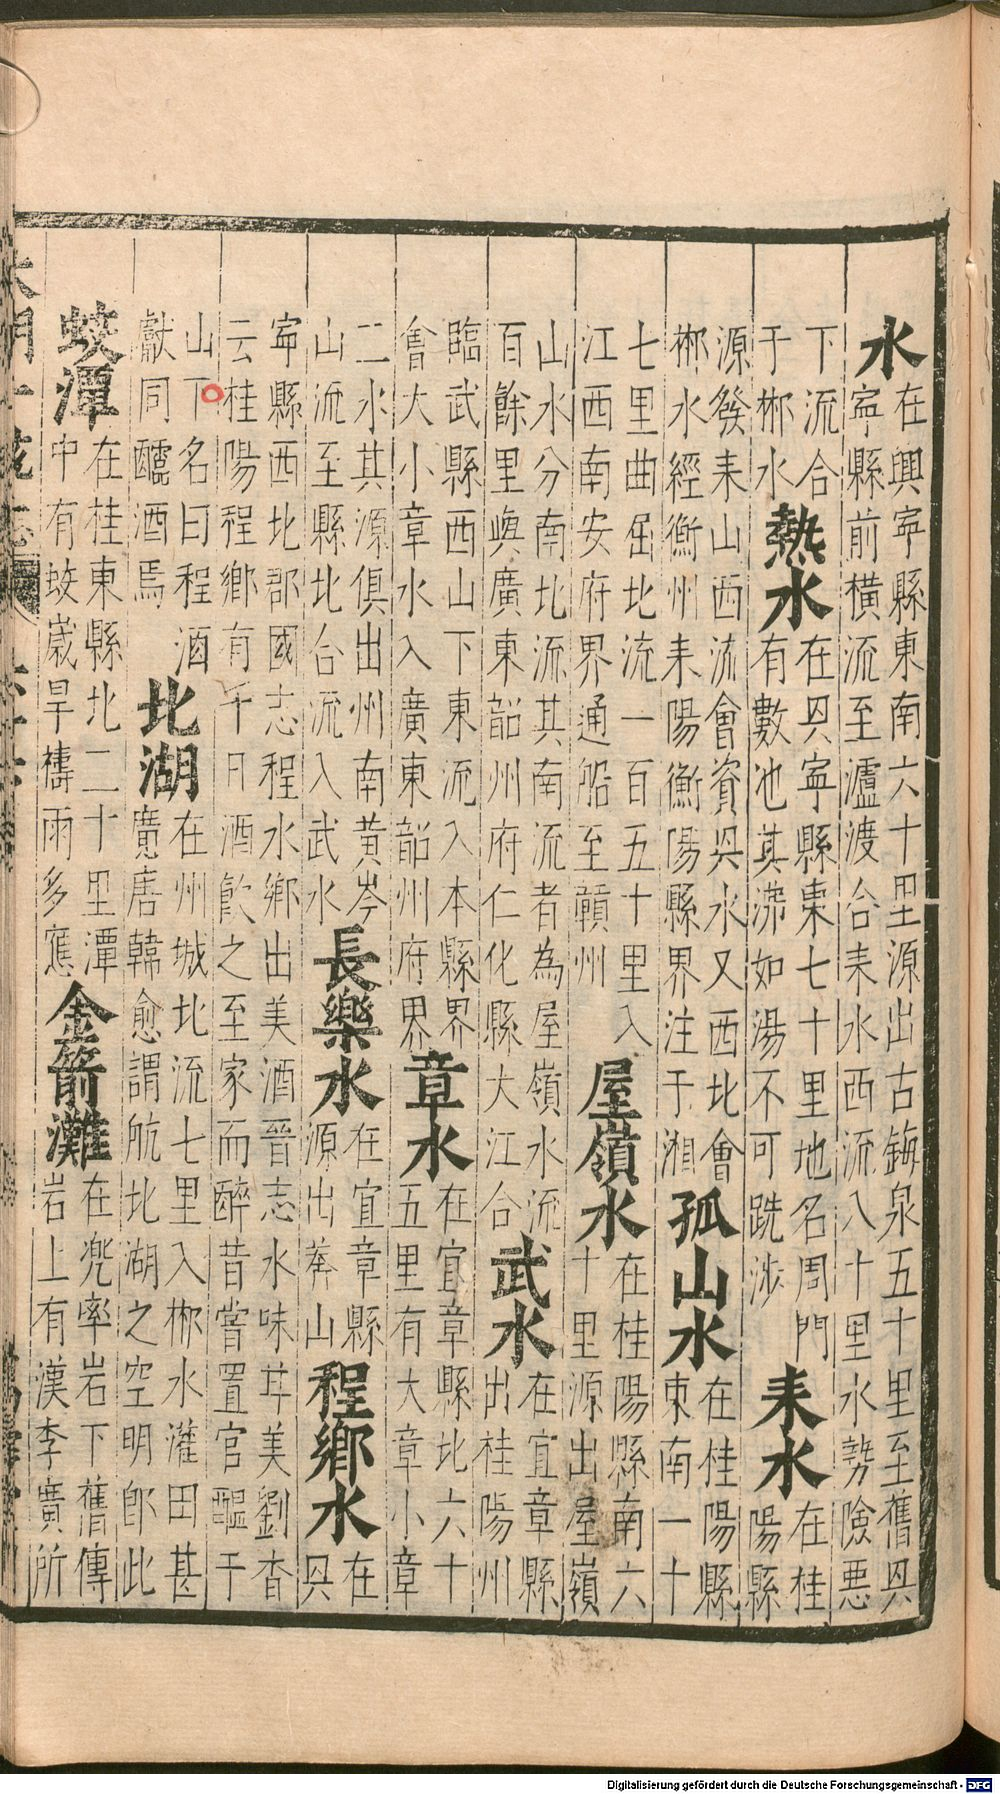 水在興寧縣東南六十里源出古䥈泉五十里至舊㒷寧縣前横流至瀘渡合耒水西流入十里水勢險惡
下流合于郴水熱水在㒷寧縣東七十里地名周門有數池其沸如湯不可跣涉耒水在桂陽縣
源發耒山西流會資㒷水又西北會郴水經衡州耒陽衡陽縣界注于湘孤山水在桂陽縣東南一十
七里曲屈北流一百五十里入江西南安府界通船至贛州屋嶺水在桂陽縣南六十里源出屋嶺
山水分南北流其南流者為屋嶺水流百餘里與廣東韶州府仁化縣大江合武水在宜章縣出桂陽州
臨武縣西山下東流入本縣界會大小章水入廣東韶州府界章水在宜章縣北六十五里有大章小章
二水其源俱出州南黄岑山流至縣北合流入武水長樂水在宜章縣源出莽山程鄉水在㒷
寧縣西北郡國志程水鄉出美酒晉志水味甘美劉杳云桂陽程鄉有千日酒飲之至家而醉昔嘗置官醖于
山下名曰程酒獻同酃酒焉北湖在州城北流七里入郴水灌田甚廣唐韓愈謂航北湖之空明即此
蛟潭在桂東縣北二十里潭中有蛟歲旱禱雨多應金箭灘在兠率岩下舊傳岩上有漢李廣所
Digitalisierung gefördert durch die Deutsche Forschungsgemeinschaft - DFG